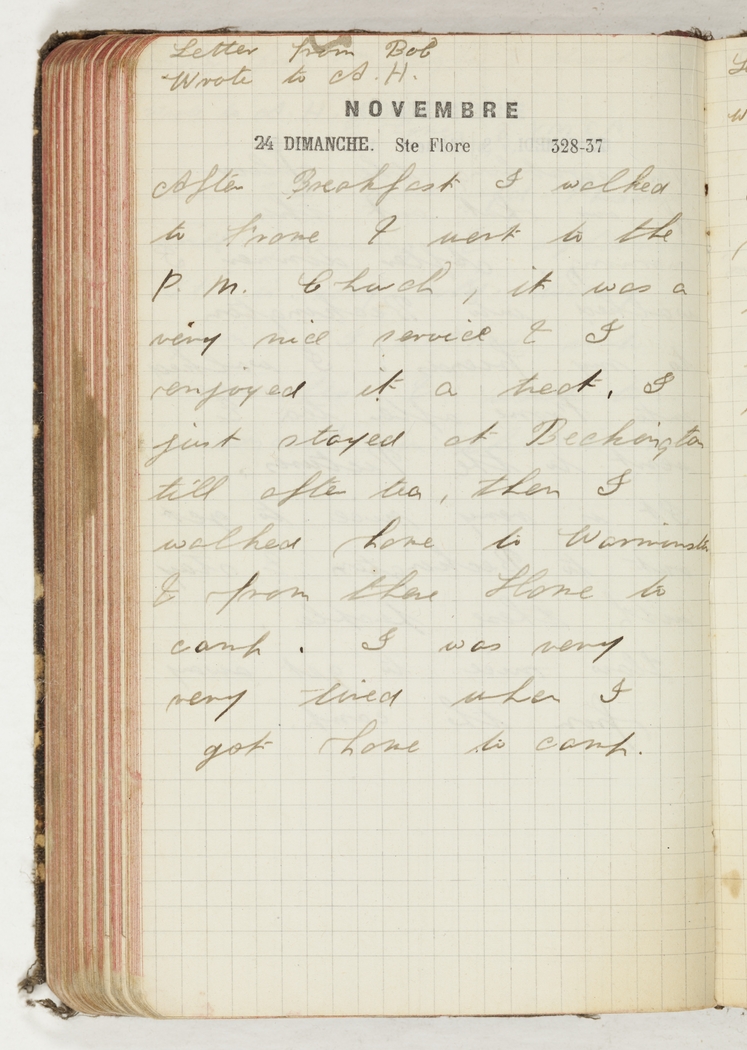 Letter from Bob
Wrote to A. H.
NOVEMBRE
24 DIMANCHE. Ste Flore 328-37
After Breakfast I walked
to Frome & went to the
P. M. Church, it was a
very nice service & I
enjoyed it a treat. I
just stayed at Beckington
till after tea, then I
walked home to Warminster
& from there Home to
camp. I was very
very tired when I
got home to camp.